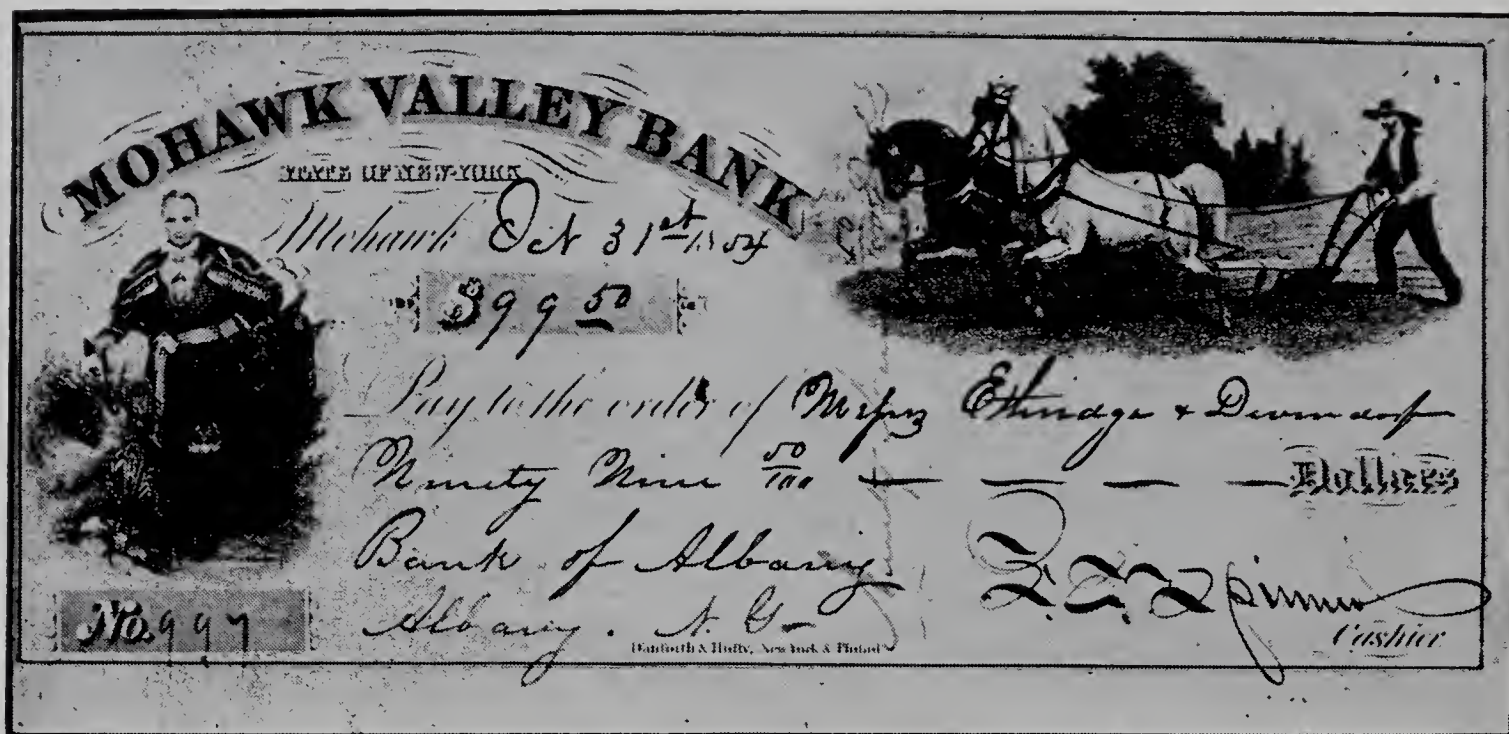 MOHAWK VALLEY BANK
STATE OF NEW-YORK
Mohawk Oct 31st 1854
$99 50
Pay to the order of Messrs Ethridge & Devendorf
Ninety Nine 50/100 — — — — Dollars
Bank of Albany
Albany. N. Y—
F. E. Spinner
Cashier
No. 997
Danforth & Hufty, New York & Philad